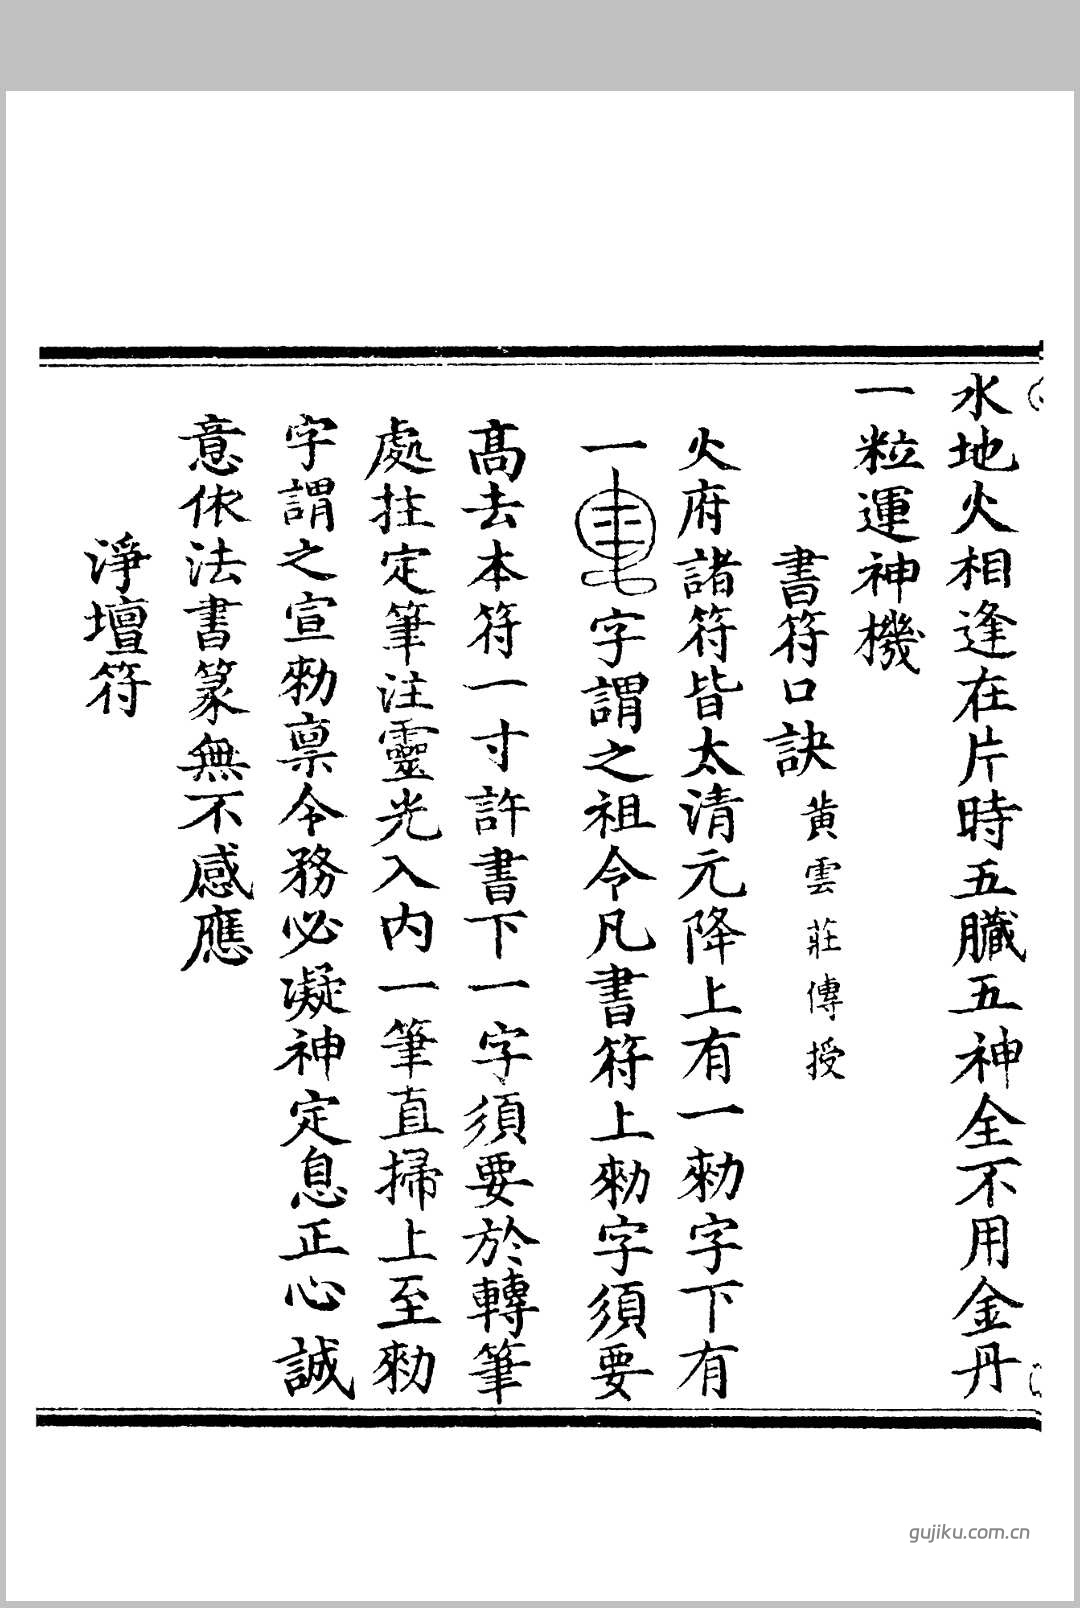 水地火相逢在片時五臟五神全不用金丹
一粒運神機
書符口訣黄雲莊傳授
火府諸符皆太清元降上有一勑字下有
一字謂之祖令凡書符上勑字須要
高去本符一寸許書下一字須要於轉筆
處拄定筆注靈光入内一筆直掃上至勑
字謂之宣勑禀令務必凝神定息正心誠
意依法書篆無不感應
淨壇符
gujiku.com.cn